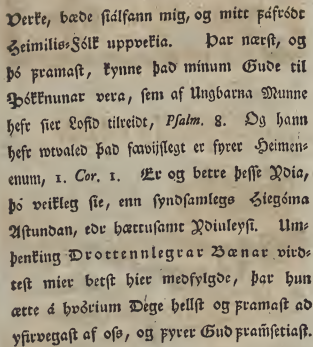 Verke, bæde siálfann mig, og mitt fáfródt
Heimilis-Fólk uppvekia. Þar nærst, og
þó framast, kynne það mínum Gude til
Þókknunar vera, sem af Ungbarna Munne
hefr sier Lofid tilreidt, Psalm. 8. Og hann
hefr wtvaled þad fávijslegt er fyrer Heimen-
enum, 1. Cor. 1. Er og betre þesse Ydia,
þó veikleg sie, enn syndsamlegs Hiegóma
Astundan, edr hættusamt Ydiuleysi. Um-
þenking Drottennlegrar Bænar vird-
test mier betst hier medfylgde, þar hun
ætte á hvörium Dege hellst og framast ad
yfirvegast af oss, og fyrer Gud framsetiast.